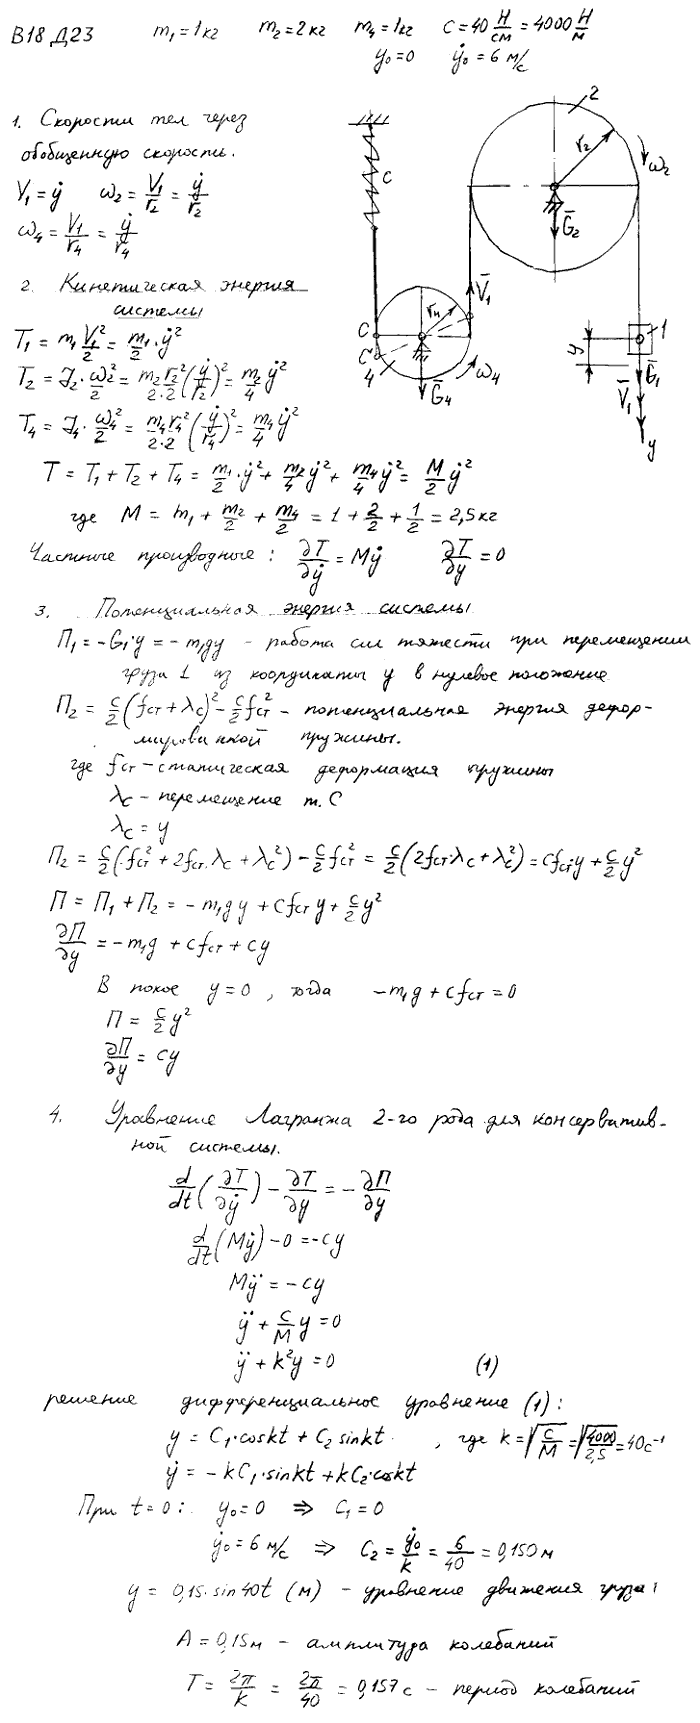 В18 Д23 m₁=1кг m₂=2кг m₄=1кг C=40 Н/см = 4000 Н/м
y₀=0 ẏ₀=6 м/с
1. Скорости тел через
обобщенную скорость.
V₁=ẏ ω₂=V₁/r₂=ẏ/r₂
ω₄=V₁/r₄=ẏ/r₄
2. Кинетическая энергия
системы
T₁=m₁V₁²/2=m₁/2·ẏ²
T₂=J₂·ω₂²/2=m₂r₂²/2·2(ẏ/r₂)²=m₂/4ẏ²
T₄=J₄·ω₄²/2=m₄r₄²/2·2(ẏ/r₄)²=m₄/4ẏ²
2
r₂
ω₂
G̅₂
C
V̅₁
r₄
C
C'
4
G̅₄
ω₄
1
y
G̅₁
V̅₁
y
T=T₁+T₂+T₄=m₁/2·ẏ²+m₂/4ẏ²+m₄/4ẏ²=M/2ẏ²
где M=m₁+m₂/2+m₄/2=1+2/2+1/2=2,5кг
Частные производные: ∂T/∂ẏ=Mẏ ∂T/∂y=0
3. Потенциальная энергия системы
П₁=-G₁·y=-m₁gy - работа сил тяжести при перемещении
груза 1 из координаты y в нулевое положение
П₂=c/2(fст+λc)²-c/2fст² - потенциальная энергия дефор-
мированной пружины.
где fст - статическая деформация пружины
λc - перемещение т. C
λc=y
П₂=c/2(fст²+2fст·λc+λc²)-c/2fст²=c/2(2fст·λc+λc²)=cfст·y+c/2y²
П=П₁+П₂=-m₁gy+cfстy+c/2y²
∂П/∂y=-m₁g+cfст+cy
В покое y=0, тогда -m₁g+cfст=0
П=c/2y²
∂П/∂y=cy
4. Уравнение Лагранжа 2-го рода для консерватив-
ной системы.
d/dt(∂T/∂ẏ)-∂T/∂y=-∂П/∂y
d/dt(Mẏ)-0=-cy
Mÿ=-cy
ÿ+c/My=0
ÿ+k²y=0 (1)
решение дифференциальное уравнение (1):
y=C₁·coskt+C₂sinkt, где k=√(c/M)=√(4000/2,5)=40с⁻¹
ẏ=-kC₁·sinkt+kC₂·coskt
При t=0: y₀=0 ⇒ C₁=0
ẏ₀=6 м/с ⇒ C₂=ẏ₀/k=6/40=0,150м
y=0,15·sin40t (м) - уравнение движения груза 1
A=0,15м - амплитуда колебаний
T=2π/k=2π/40=0,157с - период колебаний